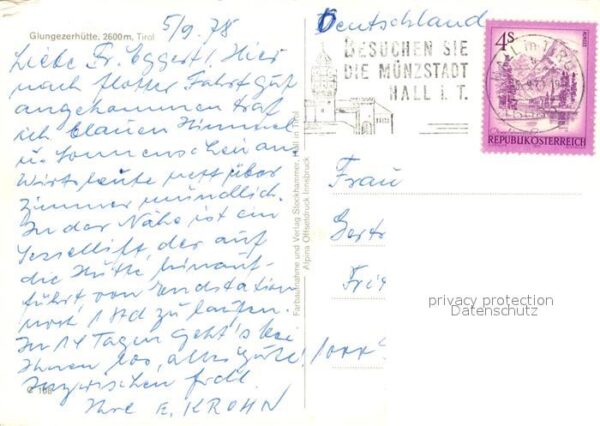 Glungezerhütte, 2600 m, Tirol
5/9. 78
Liebe Fr. Eggert! Hier
nach flotter Fahrt gut
angekommen traf
ich blauen Himmel
u. Sonnenschein an
Wirtsleute nett über
Zimmer mündlich.
In der Nähe ist ein
Sessellift, der auf
die Hütte hinauf-
führt, von Endstation
noch 1 Std zu laufen.
In 14 Tagen geht's bei
Ihnen los, alles Gute!
Inzwischen frdl.
Ihre E. KROHN
Farbaufnahme und Verlag Stockhammer, Hall in Tirol
Alpina Offsetdruck Innsbruck
Deutschland
BESUCHEN SIE
DIE MÜNZSTADT
HALL I. T.
4 S
REPUBLIK ÖSTERREICH
Frau
Gertr
Frie
privacy protection
Datenschutz